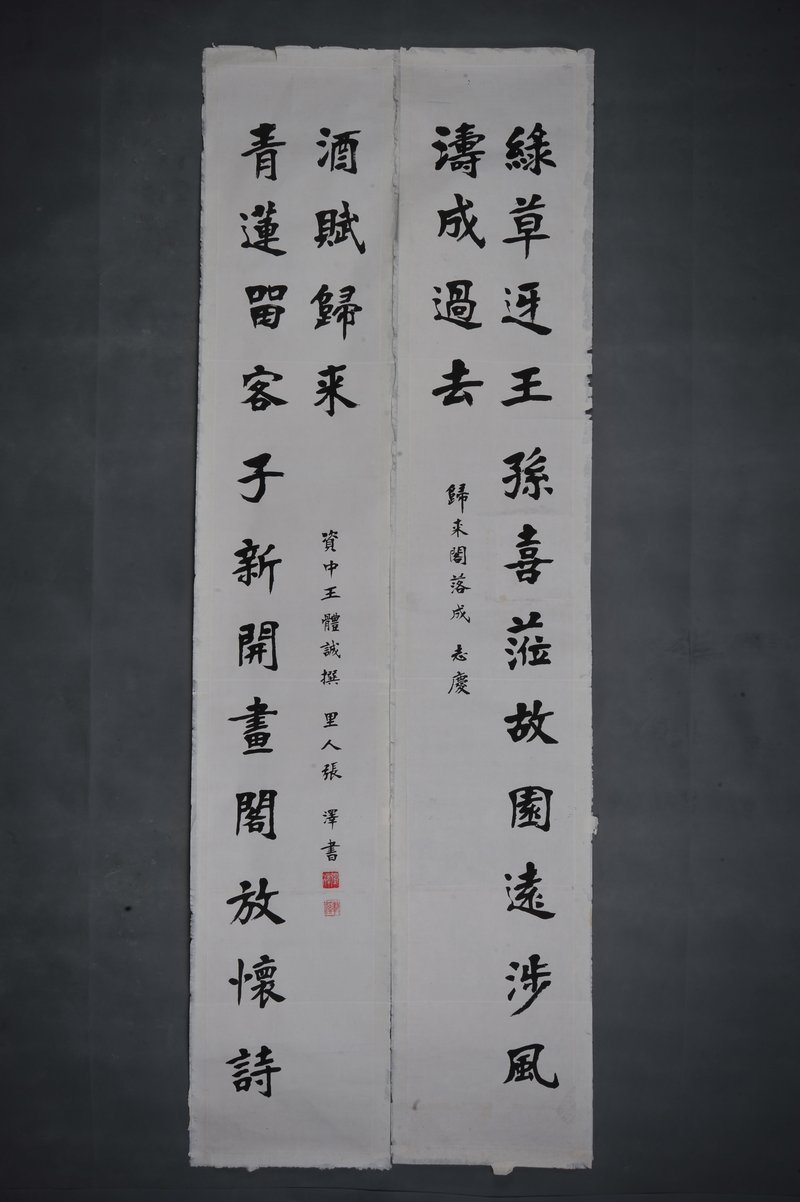 綠草迓王孫喜蒞故園遠涉風
濤成過去
歸来閣落成 志慶
青蓮留客子新開畫閣放懷詩
酒賦歸来
資中王體誠撰 里人張澤書